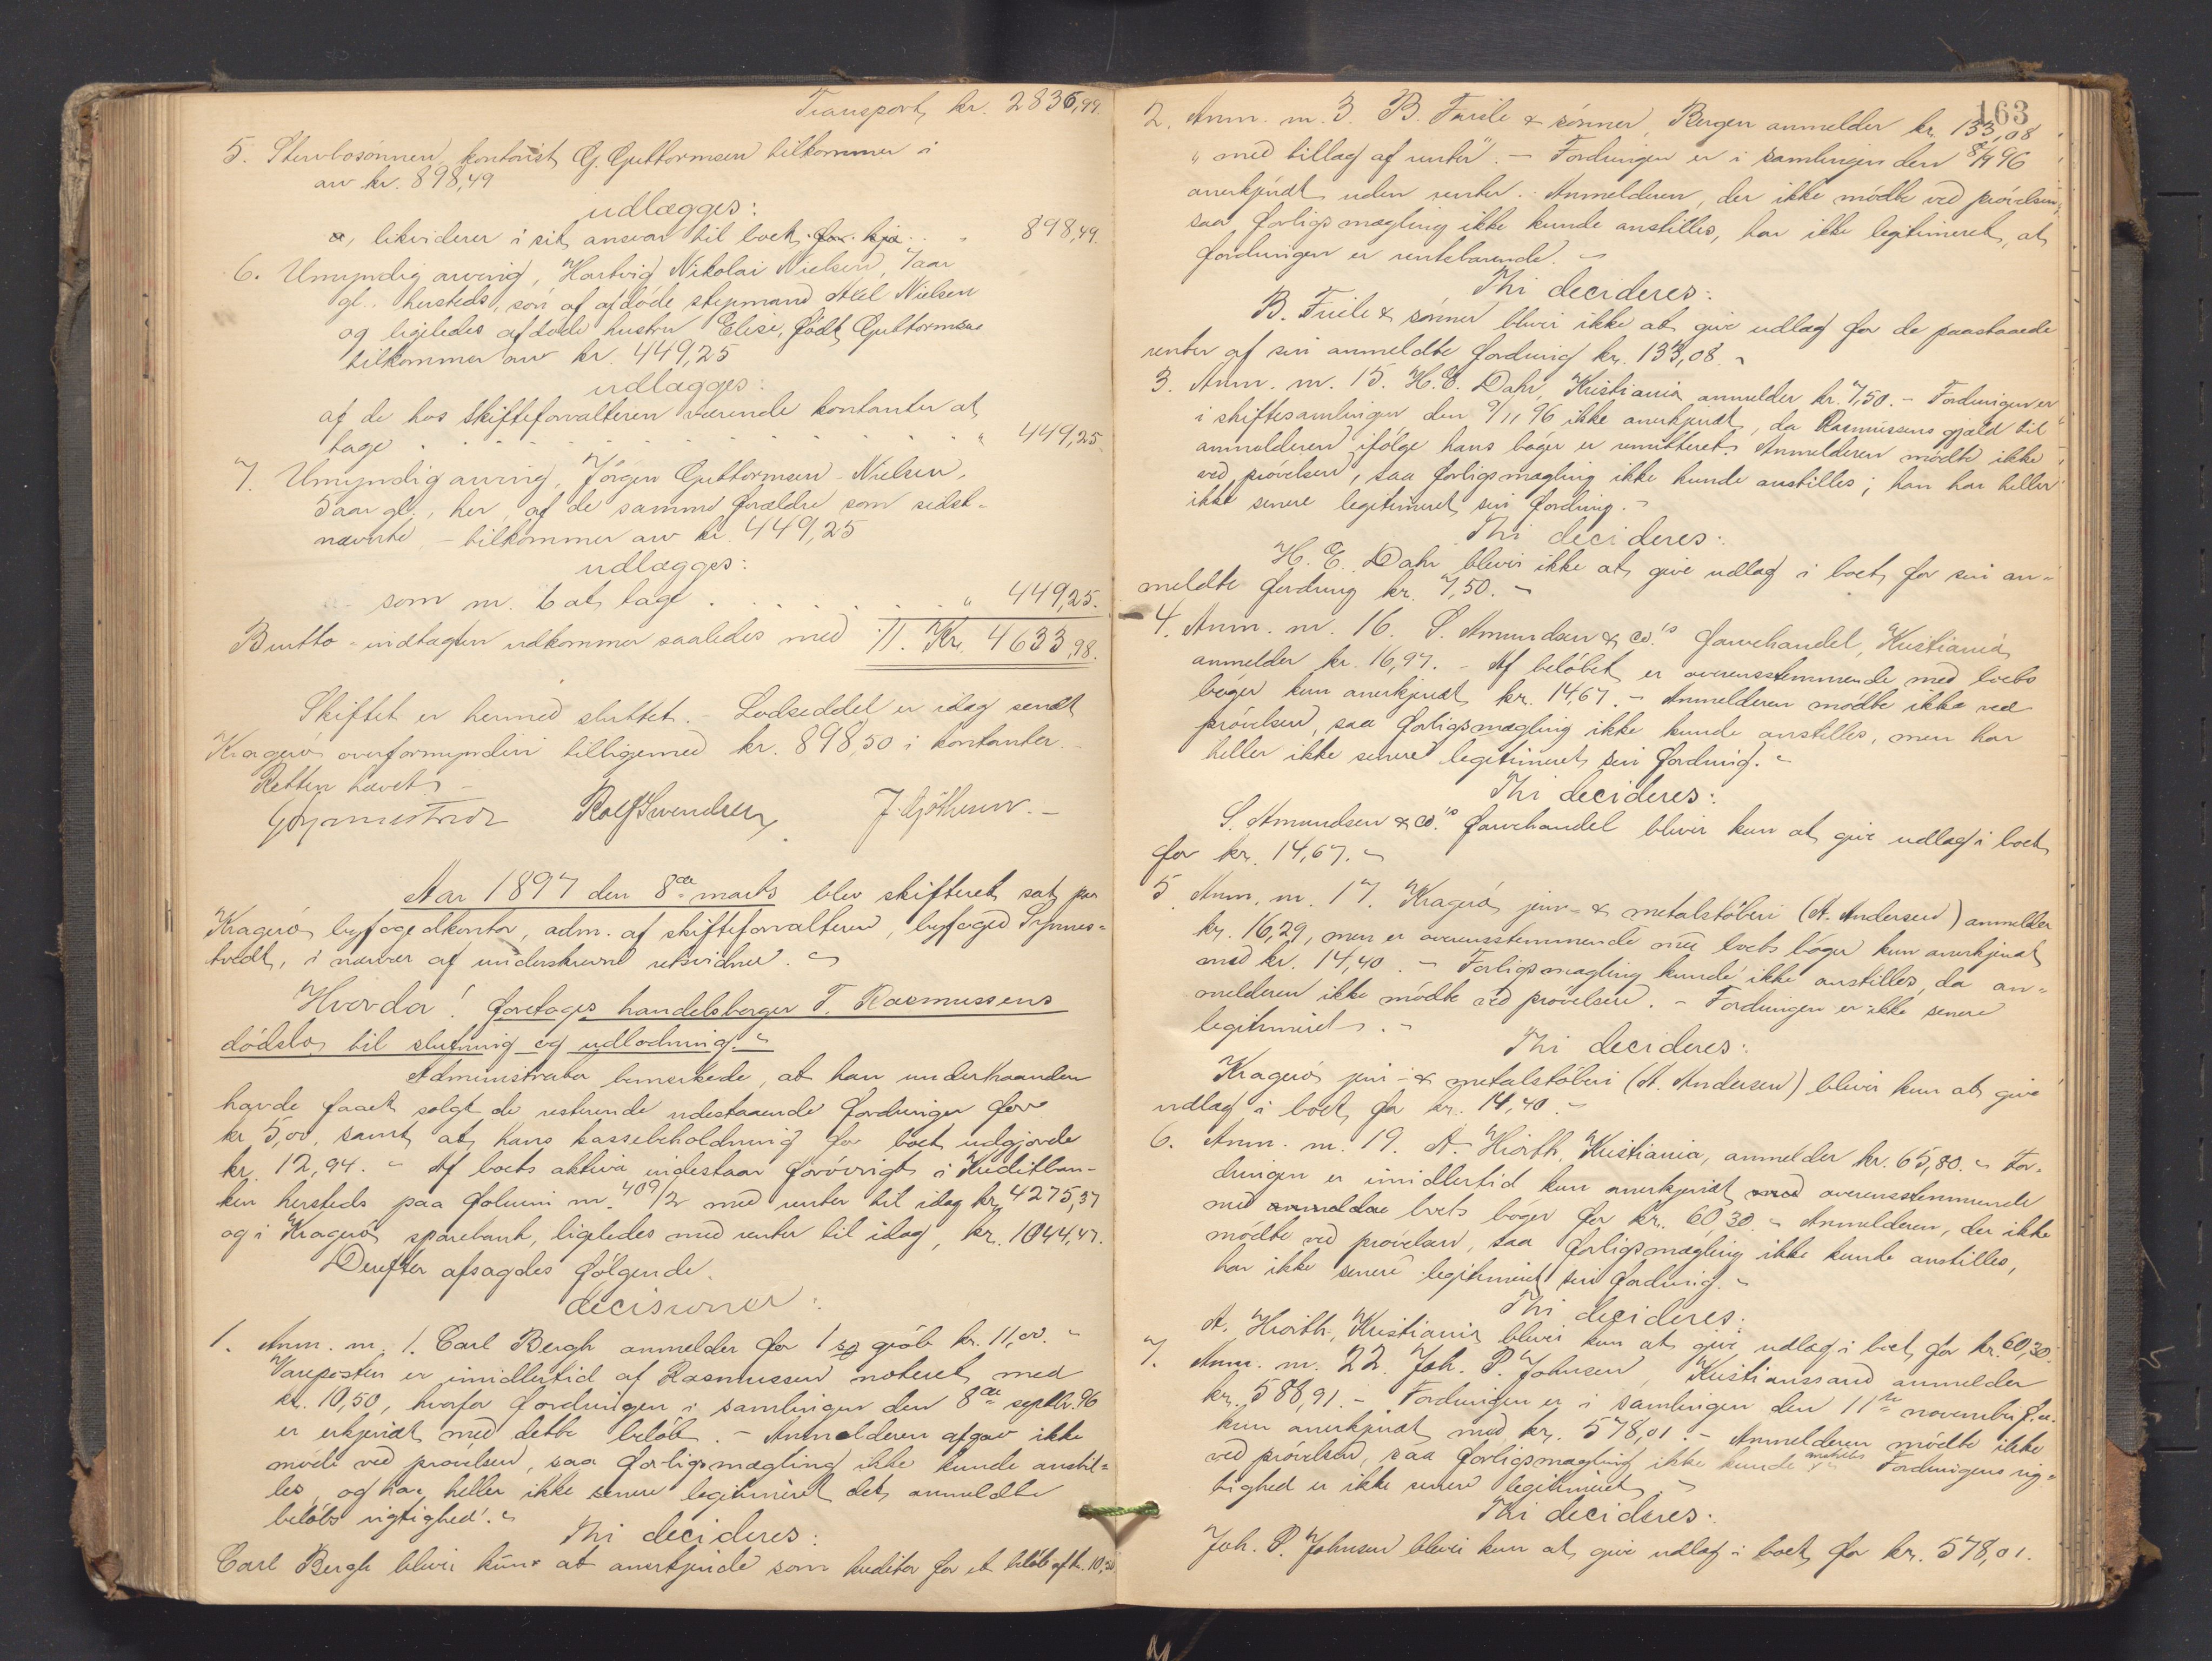 Transport, kr. 2836,99.
5. Stervbosønnen, kontorist G. Guttormsen tilkommer i
arv kr. 898,49
udlægges:
a, likviderer i sit ansvar til boet for kja . . 898,49.
6. Umyndig arving, Hartvig Nikolai Nielsen, 7 aar
gl. hersteds, søn af afdøde styrmand Axel Nielsen
og ligeledes afdøde hustru Elise, født Guttormsen
tilkommer arv kr. 449,25
udlægges:
af de hos skifteforvalteren værende kontanter at
tage . . . . . . . . . . . . . . . " 449,25
7. Umyndig arving, Jørgen Guttormsen Nielsen,
5 aar gl., her, af de samme forældre som sidst-
nævnte, - tilkommer arv kr. 449,25
udlægges:
som nr. 6 at tage . . . . . . . " 449,25.
Brutto-indtægten udkommer saaledes med //. Kr. 4633,98.
Skiftet er hermed sluttet. - Lodseddel er idag sendt
Kragerø overformynderi tilligemed kr. 898,50 i kontanter. -
Retten hævet -
Rolf Svendsen J. Gjøthesen. -
Aar 1897 den 8de marts blev skifteret sat paa
Kragerø byfogedkontor, adm. af skifteforvalteren, byfoged Grynnes-
tvedt, i nærvær af underskrevne retsvidner. -
Hvorda: foretages handelsborger T. Rasmussens
dødsbo til slutning og udlodning. -
Administrator bemerkede, at han underhaanden
havde faaet solgt de resterende udestaaende fordringer for
kr. 5,00, samt at hans kassebeholdning for boet udgjorde
kr. 12,94. - Af boets aktiva indestaar forøvrigt i Kreditban-
ken hersteds paa folium nr. 409/2 med renter til idag kr. 4275,37
og i Kragerø sparebank, ligeledes med renter til idag, kr. 1044,47.
Derefter afsagdes følgende
decisioner:
1. Anm. nr. 1. Carl Bergh anmelder for 1 sæ grøb kr. 11,00. -
Vareposten er imidlertid af Rasmussen noteret med
kr. 10,50, hvorfor fordringen i samlingen den 8de septbr. 96
er erkjendt med dette beløb. - Anmelderen afgav ikke
møde ved prøvelsen, saa forligsmægling ikke kunde anstil-
les, og har heller ikke senere legitimeret det anmeldte
beløbs rigtighed. -
Thi decideres:
Carl Bergh bliver kun at anerkjende som kreditor for et beløb af kr. 10,50
163
2. Anm. nr. 3. B. Friele & sønner, Bergen anmelder kr. 133,08
" med tillæg af renter". - Fordringen er i samlingen den 8/9 96
anerkjendt uden renter. - Anmelderen, der ikke mødte ved prøvelsen,
saa forligsmægling ikke kunde anstilles, har ikke legitimeret, at
fordringen er rentebærende. -
Thi decideres:
B. Friele & sønner bliver ikke at give udlæg for de paastaaede
renter af sin anmeldte fordring kr. 133,08. -
3. Anm. nr. 15. H. E. Dahr, Kristiania, anmelder kr. 7,50. - Fordringen er
i skiftesamlingen den 9/11 96 ikke anerkjendt, da Rasmussens gjæld til
anmelderen ifølge hans bøger er remitteret. Anmelderen mødte ikke
ved prøvelsen, saa forligsmægling ikke kunde anstilles; han har heller
ikke senere legitimeret sin fordring. -
Thi decideres:
H. E. Dahr bliver ikke at give udlæg i boet for sin an-
meldte fordring kr. 7,50. -
4. Anm. nr. 16. S. Amundsen & co's farvehandel, Kristiania,
anmelder kr. 16,97. - Af beløbet er overensstemmende med boets
bøger kun anerkjendt kr. 14,67. - Anmelderen mødte ikke ved
prøvelsen, saa forligsmægling ikke kunde anstilles, men har
heller ikke senere legitimeret sin fordring. -
Thi decideres:
S. Amundsen & co's farvehandel bliver kun at give udlæg i boet
for kr. 14,67. -
5. Anm. nr. 17. Kragerø jern- & metalstøberi (A. Andersen) anmelder
kr. 16,29, men er overensstemmende med boets bøger kun anerkjendt
med kr. 14,40. - Forligsmægling kunde ikke anstilles, da an-
melderen ikke mødte ved prøvelsen. - Fordringen er ikke senere
legitimeret. -
Thi decideres:
Kragerø jern- & metalstøberi (A. Andersen) bliver kun at give
udlæg i boet for kr. 14,40. -
6. Anm. nr. 19. A. Hiorth, Kristiania, anmelder kr. 65,80. - For-
dringen er imidlertid kun anerkjendt med overensstemmende
med anmeldae boets bøger for kr. 60,30. - Anmelderen, der ikke
mødte ved prøvelsen, saa forligsmægling ikke kunde anstilles,
har ikke senere legitimeret sin fordring. -
Thi decideres:
A. Hiorth, Kristiania bliver kun at give udlæg i boet for kr. 60,30.
7. Anm. nr. 22. Joh. P. Johnsen, Kristianssand anmelder
kr. 588,91. - Fordringen er i samlingen den 11te november f. a.
kun anerkjendt med kr. 578,01. - Anmelderen mødte ikke
ved prøvelsen, saa forligsmægling ikke kunde anstilles. Fordringens rig-
tighed er ikke senere legitimeret. -
Thi decideres:
Joh. P. Johnsen bliver kun at give udlæg i boet for kr. 578,01.